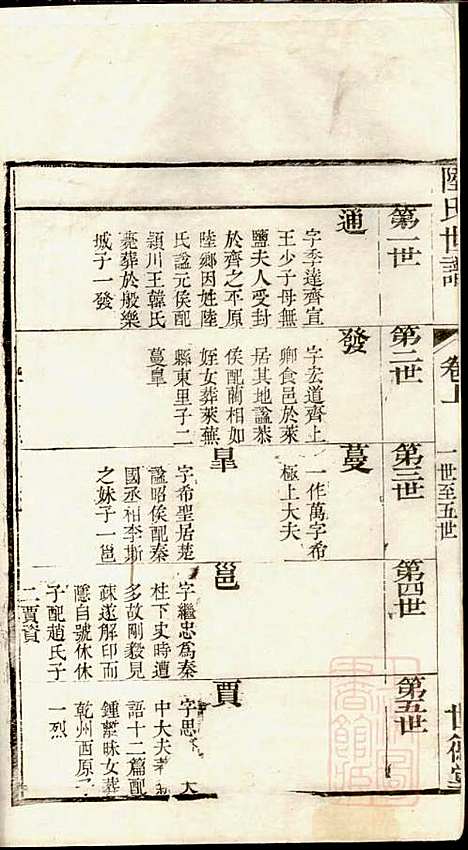 陸氏世譜
卷上
一世至五世
世德堂
第一世
通
字季達齊宣
王少子母無
鹽夫人受封
於齊之不原
陸鄉因姓陸
氏諡元侯配
潁川王韓氏
薨葬於般樂
城子一發
第二世
發
字宏道齊上
卿食邑於萊
居其地諡恭
侯配蔺相如
姪女葬萊蕪
縣東里子二
蔓皇
第三世
蔓
一作萬字希
極上大夫
皇
字希聖居楚
諡昭侯配秦
國丞相李斯
之妹子一邕
第四世
邕
字繼忠為秦
柱下史時遭
多故剛毅見
疎遂解印而
隱自號休休
子配趙氏子
二賈資
第五世
賈
字思 大
中大夫著新
語十二篇配
鍾離昧女葬
乾州西原子
一烈